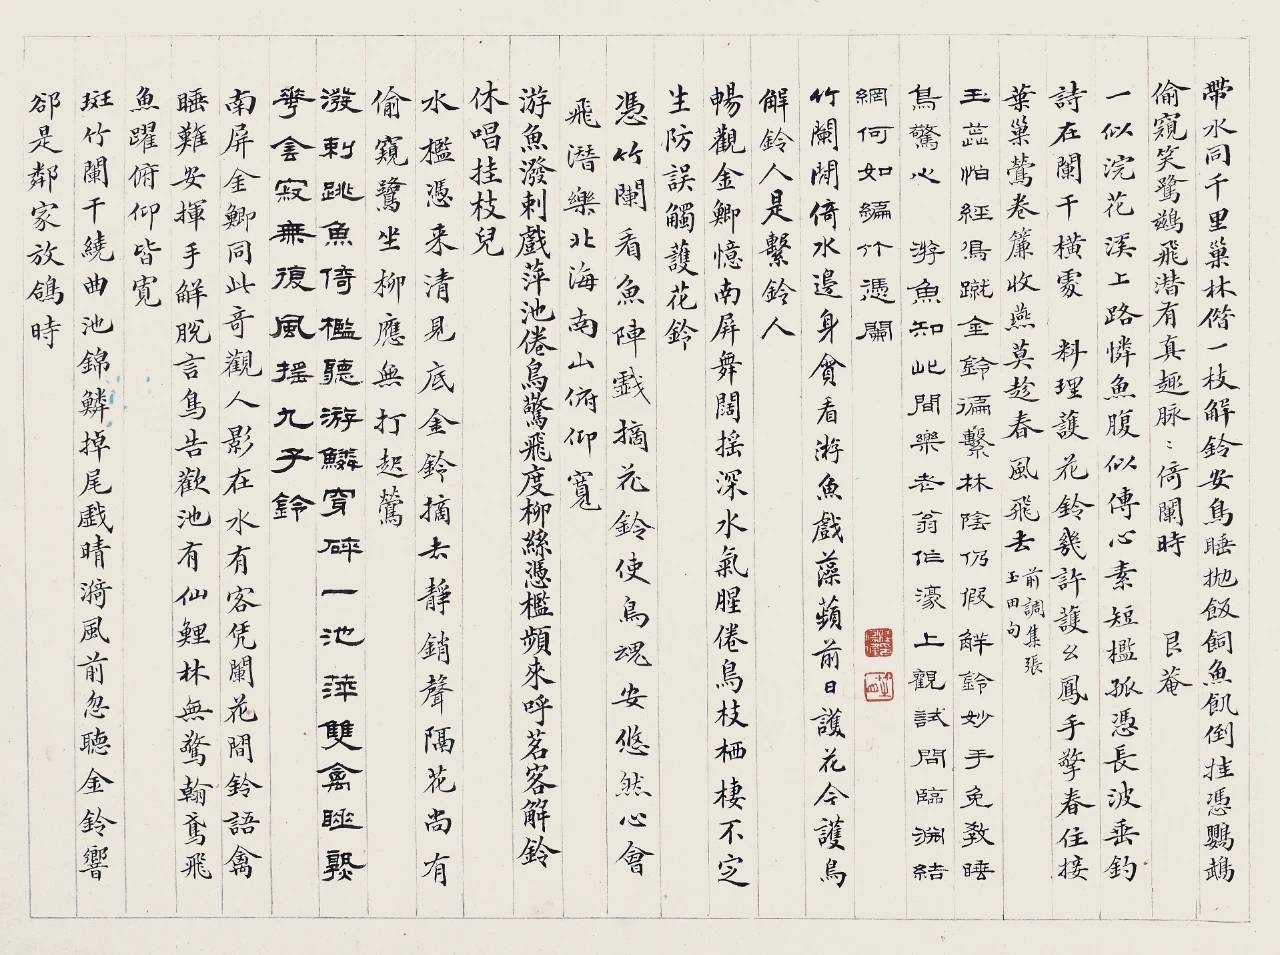 帶水同千里巢林偕一枝解鈴安鳥睡拋飯飼魚飢倒挂憑鸚鵡
偷窺笑鷺鷀飛潛有真趣脉〻倚闌時　艮菴
一似浣花溪上路憐魚腹似傳心素短檻孤憑長波垂釣
詩在闌干橫處　料理護花鈴幾許護幺鳳手擎春住接
葉巢鶯卷簾收燕莫趁春風飛去 前調集張
玉田句
玉蕊怕經鳥蹴金鈴徧繫林陰仍假解鈴妙手免教睡
鳥驚心　游魚知此間樂老翁作濠上觀試問臨淵結
網何如編竹憑闌
竹闌閒倚水邊身貪看游魚戲藻蘋前日護花今護鳥
解鈴人是繫鈴人
暢觀金鯽憶南屏舞闊搖深水氣腥倦鳥枝栖棲不定
生防誤觸護花鈴
憑竹闌看魚陣戲摘花鈴使鳥魂安悠然心會
飛潛樂北海南山俯仰寬
游魚潑剌戲萍池倦鳥驚飛度柳絲憑檻頻來呼茗客解鈴
休唱挂枝兒
水檻憑来清見底金鈴摘去靜銷聲隔花尚有
偷窺鷺坐柳應無打起鶯
潑剌跳魚倚檻聽游鱗穿碎一池萍雙禽睡熟
花雲寂無復風搖九子鈴
南屏金鯽同此奇觀人影在水有客凭闌花間鈴語禽
睡難安揮手解脫言鳥告歡池有仙鯉林無驚翰鳶飛
魚躍俯仰皆寬
斑竹闌干繞曲池錦鱗掉尾戲晴漪風前忽聽金鈴響
郤是鄰家放鴿時